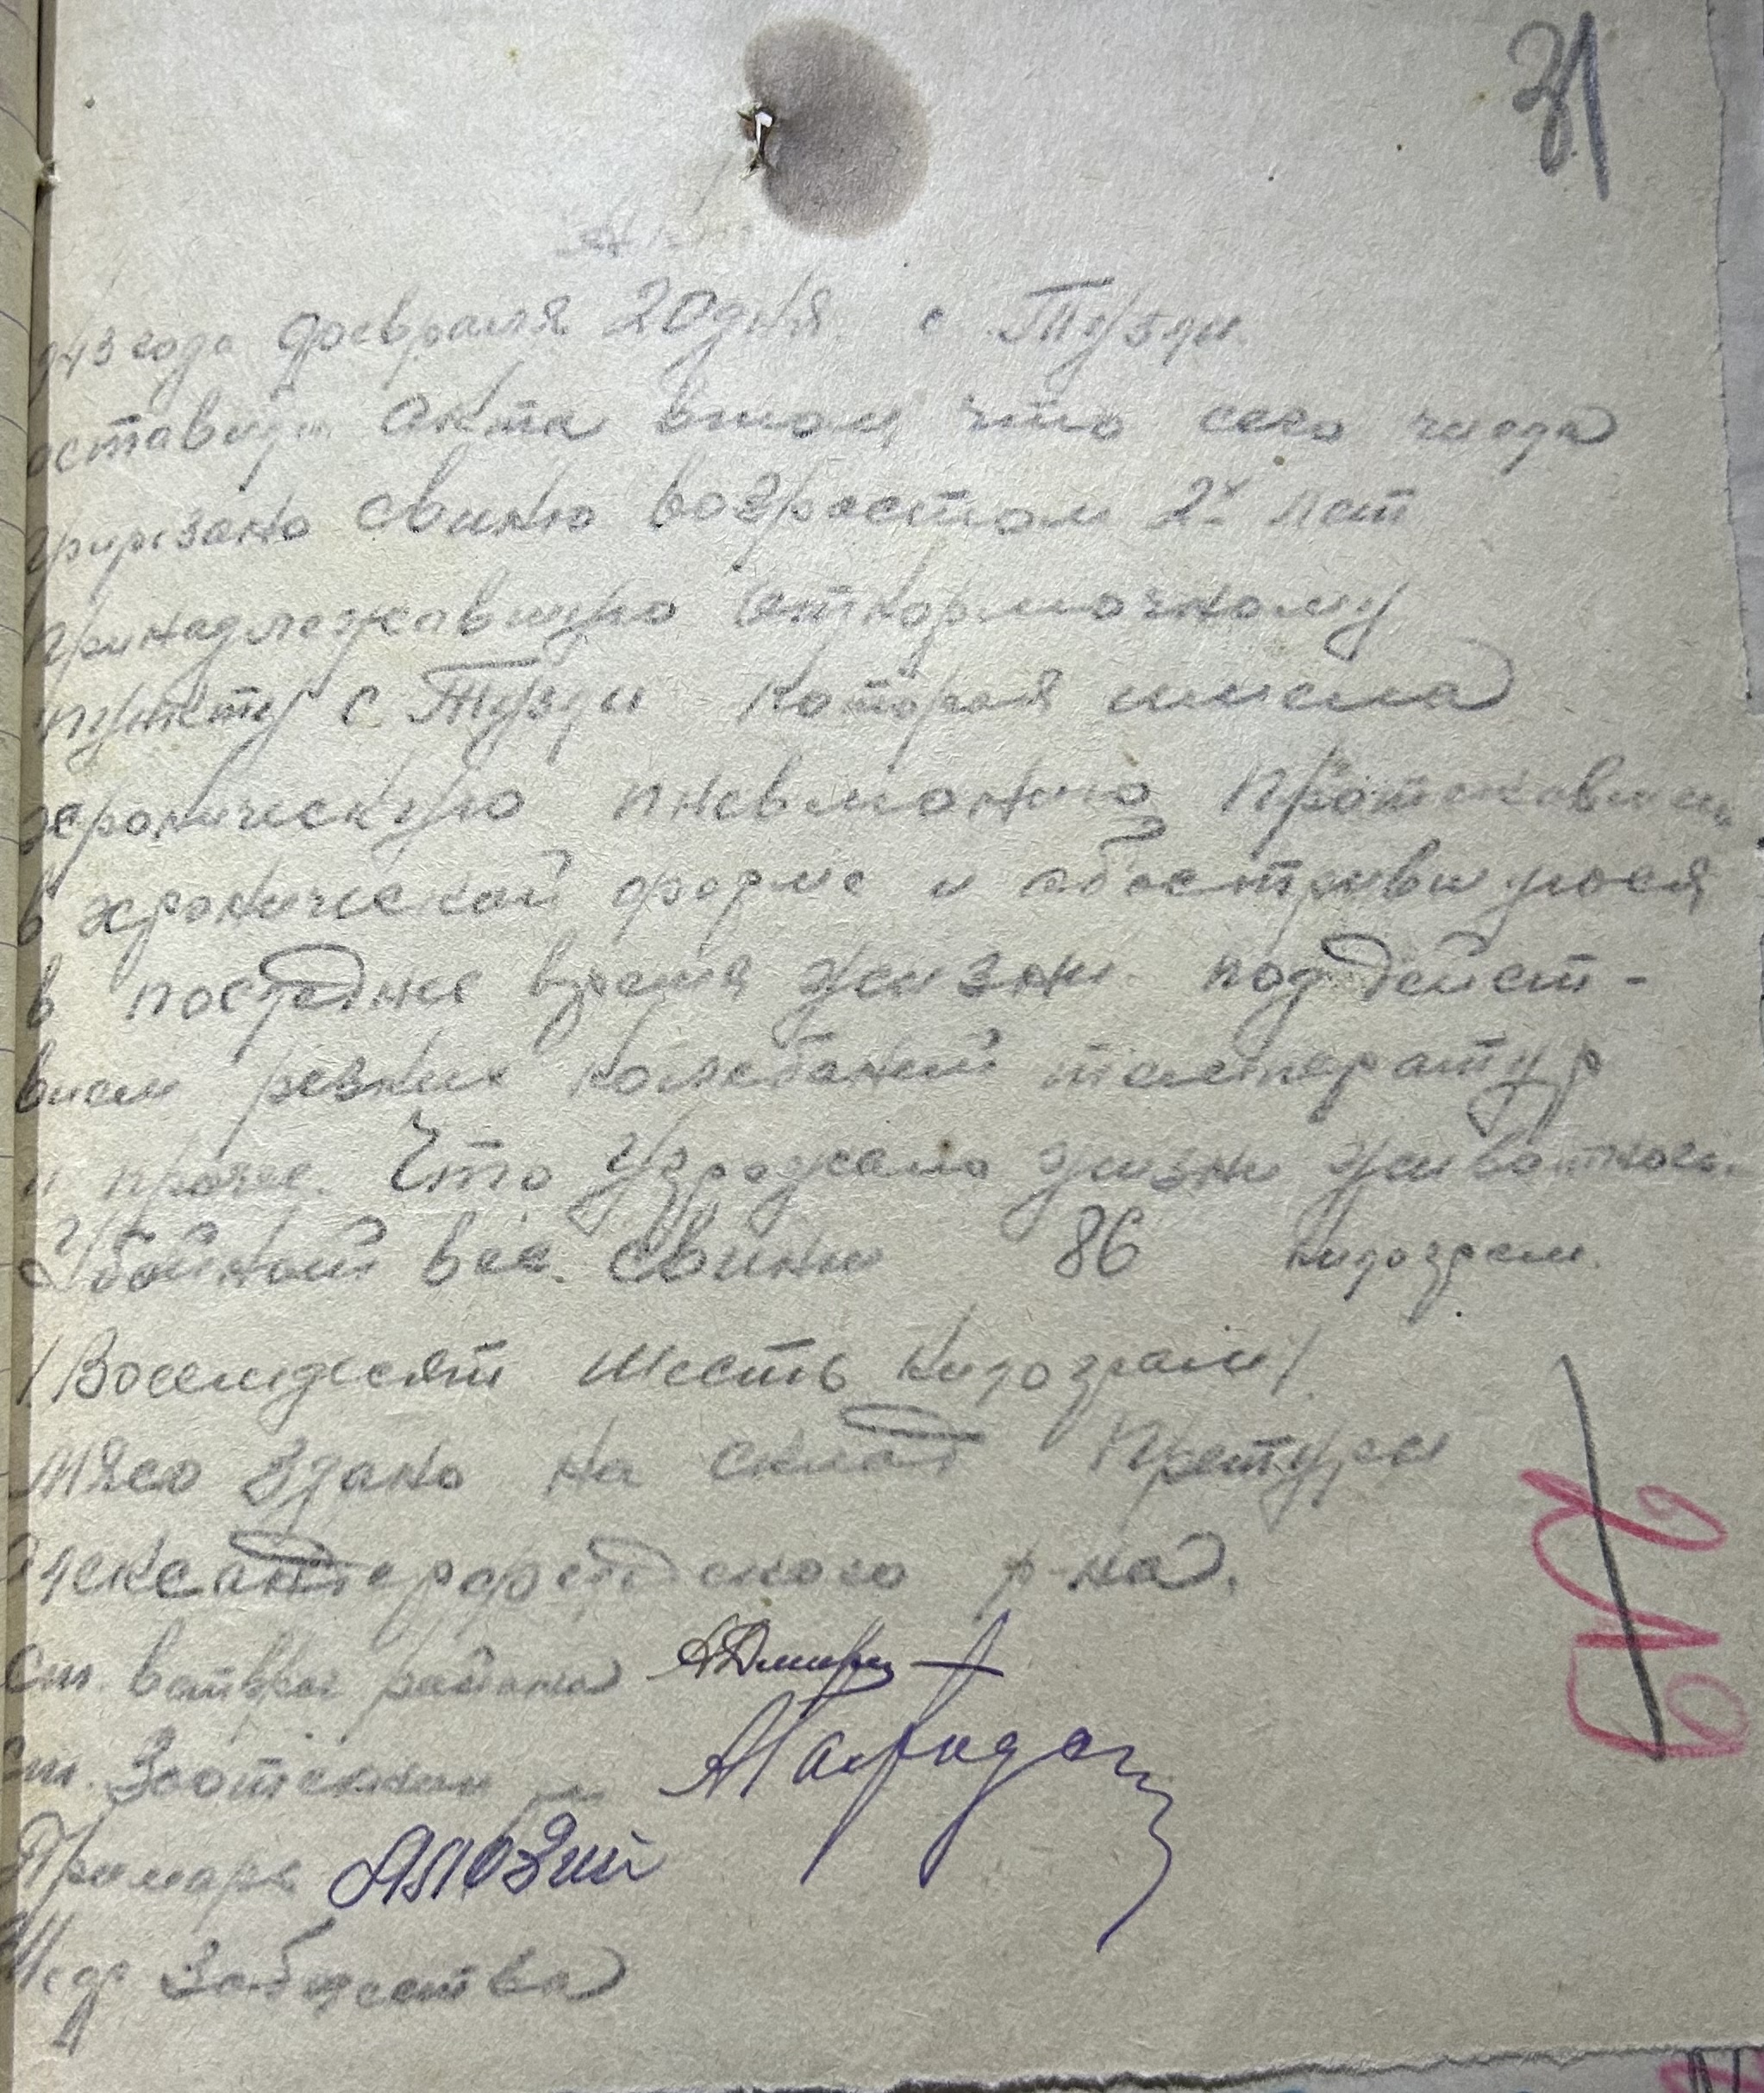 31
Акт
943 года февраля 20 дня с. Тузлы
оставили акта втом, что сего числа
прирезано свиню возрастом 2х лет
принадлежавшую откормочному
пункту с Тузлы которая имела
хроническую пневмонию протекавшую
в хронической форме и обострившуюся
в последние время жизни под дейст-
вием резких колебаний температур
и прочее. Что угрожало жизни животного
Убойной вес свинни 86 килограм.
/Восемдесят шесть килограм/.
Мясо здано на склад Претуры
Александерфельдского р-на.
ст. ветврач района
ст. Зоотехник
Примарь
Шеф Забщества
219